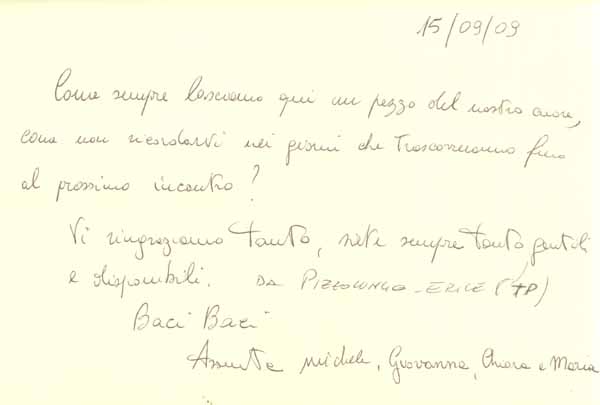 15/09/09
Come sempre lasciamo qui un pezzo del nostro cuore,
come non ricordarvi nei giorni che trascorreranno fino
al prossimo incontro?
Vi ringraziamo tanto, siete sempre tanto gentili
e disponibili. DA PIZZOLUNGO - ERICE (TP)
Baci Baci
Assunta Michele, Giovanna, Chiara e Maria